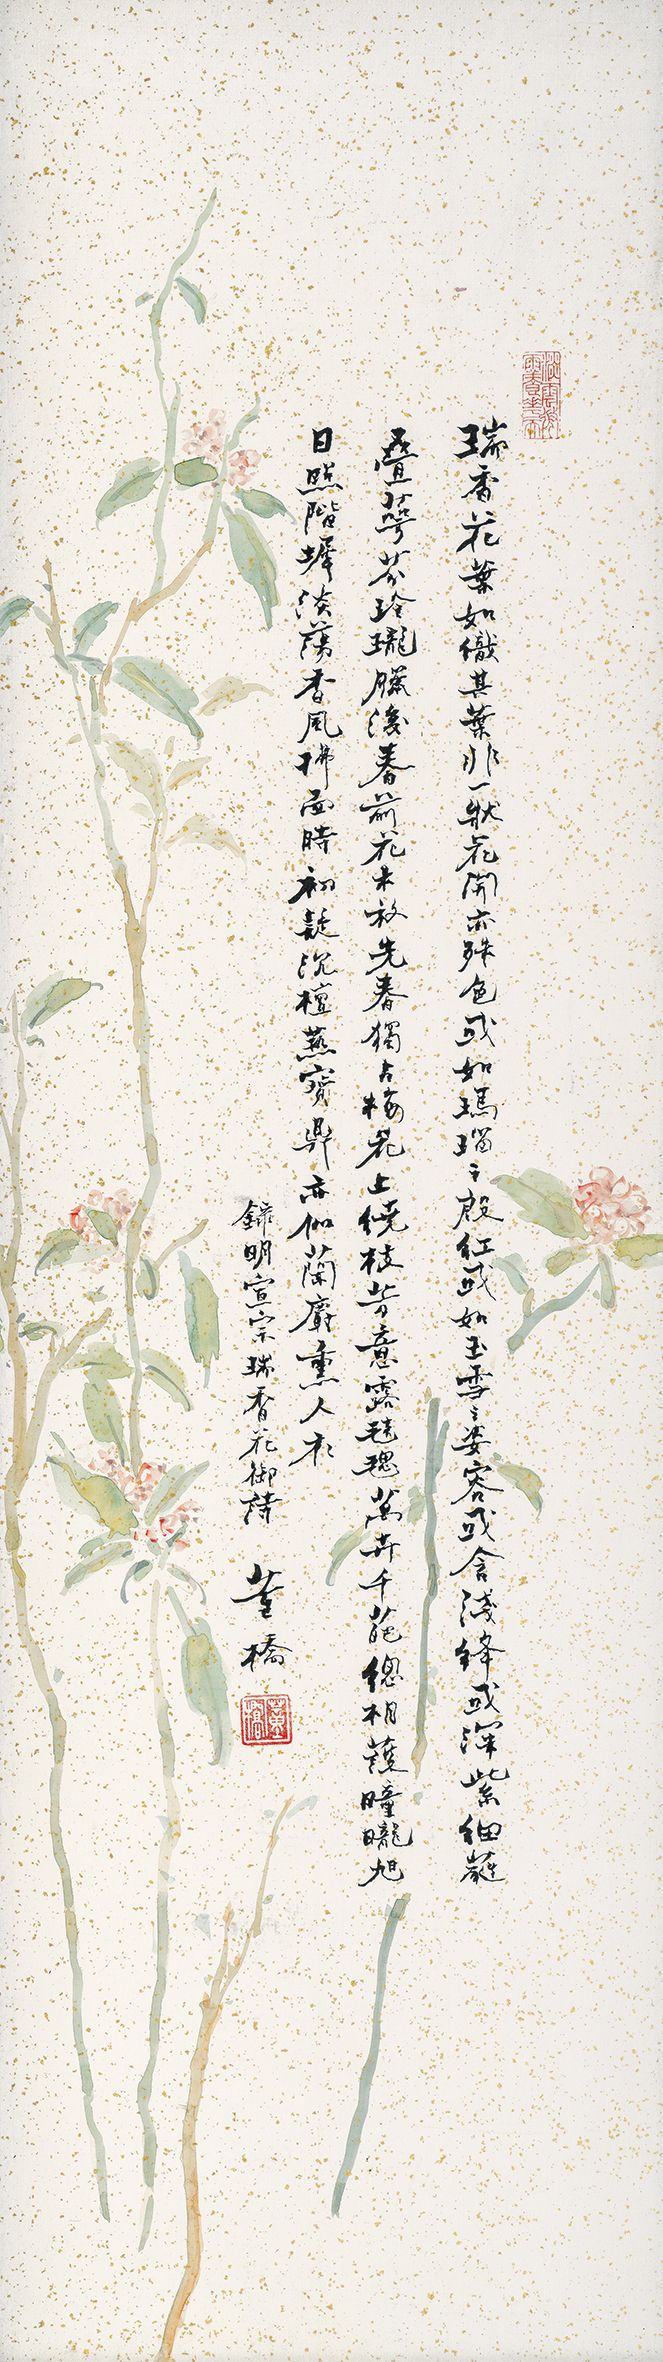 瑞香花葉如織其葉非一狀花開亦殊色或如瑪瑙之殷紅或如玉雪之姿容或含淺絳或深紫細蕤
疊萼芬玲瓏臘後春前花未放先春獨占梅花上繞枝芳意露毰毸萬卉千葩總相讓曈曨旭
日照階墀淡蕩香風拂面時初疑沉檀爇寶鼎亦似蘭麝熏人衣
錄明宣宗瑞香花御詩 董橋
董橋